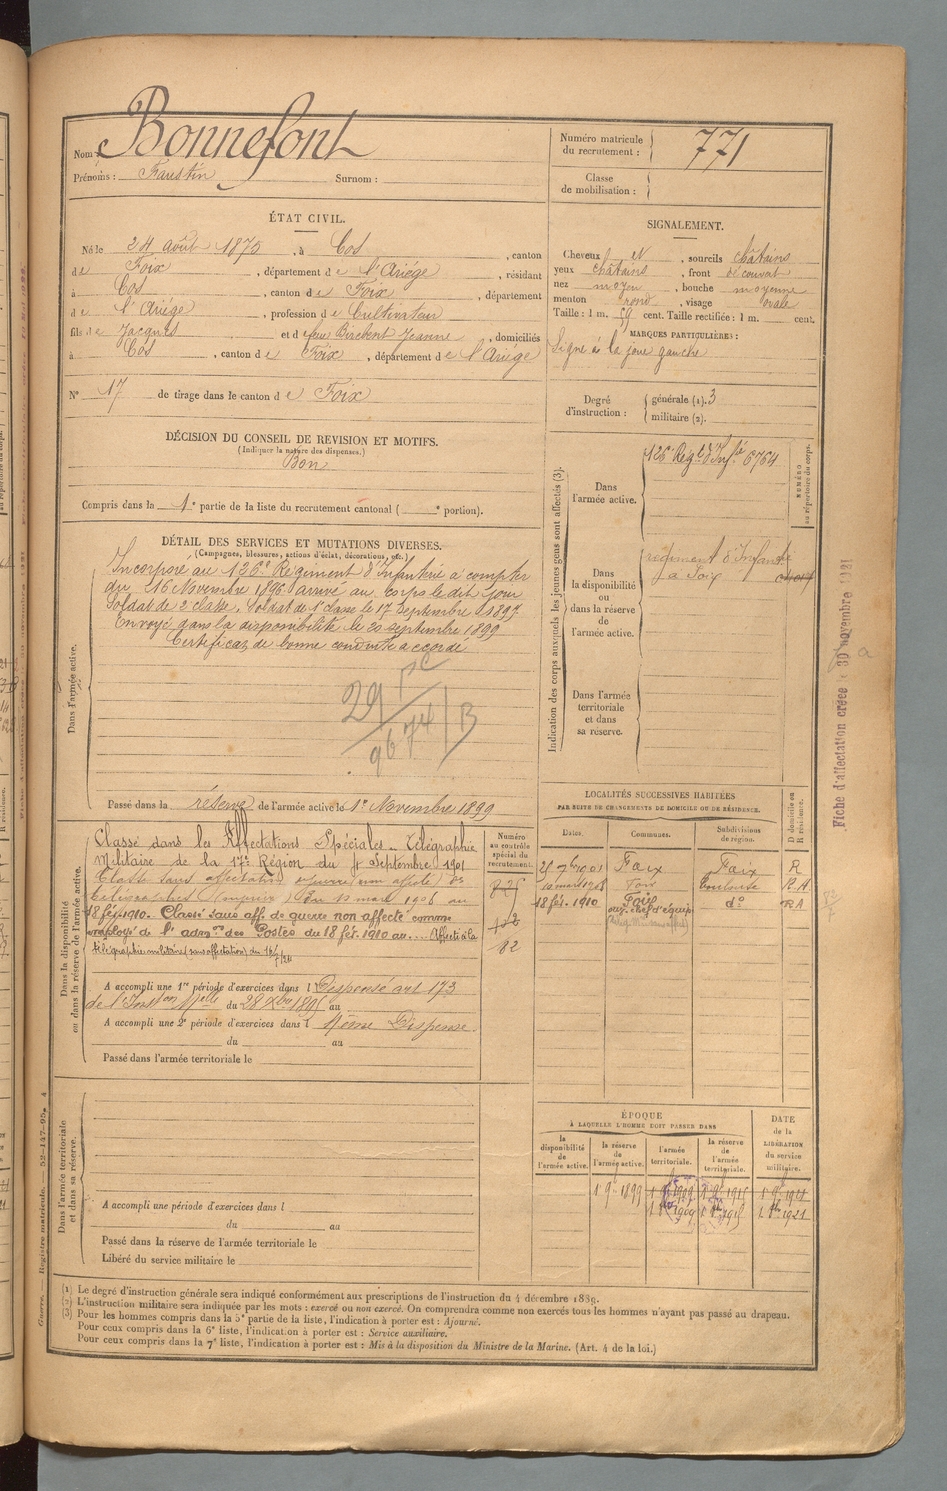 Nom : Bonnefont
Prénoms : Faustin Surnom :
Numéro matricule du recrutement : 771
Classe de mobilisation :
ÉTAT CIVIL.
Né le 24 Août 1875, à Cos, canton
de Foix, département de l'Ariége, résidant
à Cos, canton de Foix, département
de l'Ariége, profession de Cultivateur
fils de Jacques et de feu Birebent Jeanne, domiciliés
à Cos, canton de Foix, département de l'Ariége
N° 17 de tirage dans le canton de Foix
SIGNALEMENT.
Cheveux et, sourcils châtains
yeux châtains, front découvert
nez moyen, bouche moyenne
menton rond, visage ovale
Taille : 1 m. 59 cent. Taille rectifiée : 1 m. cent.
MARQUES PARTICULIÈRES :
Signe à la joue gauche
Degré d'instruction : générale (1). 3
militaire (2).
DÉCISION DU CONSEIL DE REVISION ET MOTIFS.
(Indiquer la nature des dispenses.)
Bon
Compris dans la 1e partie de la liste du recrutement cantonal ( e portion).
DÉTAIL DES SERVICES ET MUTATIONS DIVERSES.
(Campagnes, blessures, actions d'éclat, décorations, etc.)
Dans l'armée active.
Incorporé au 126e Régiment d'Infanterie à compter
du 16 Novembre 1896 arrivé au corps le dit jour
Soldat de 2e classe. Soldat de 1e classe le 17 Septembre 1897
Envoyé dans la disponibilité le 20 septembre 1899
Certificat de bonne conduite accordé
29
9674 B
Passé dans la réserve de l'armée active le 1er Novembre 1899
Indication des corps auxquels les jeunes gens sont affectés (3).
NUMÉRO au répertoire du corps.
Dans l'armée active.
126e Regt d'Infie 6764
Dans la disponibilité ou dans la réserve de l'armée active.
régiment d'Infante
à Foix
Dans l'armée territoriale et dans sa réserve.
Fiche d'affectation créée le 30 novembre 1921
Dans la disponibilité ou dans la réserve de l'armée active.
Classé dans les Affectations Spéciales. Télégraphie
Militaire de la 17e Région du Septembre 1901
Classé sans affectation
18 fév. 1910. Classé sans aff. de guerre non affecté comme
employé de l'admon des Postes du 18 fév. 1910 au.... Affecté à la
télégraphie militaire (sans affectation) du
Numéro au contrôle spécial du recrutement.
82
A accompli une 1re période d'exercices dans l Dispensé art 173
de l'Inston Melle du 28 Xbre 1895 au
A accompli une 2e période d'exercices dans l Même Dispense.
du au
Passé dans l'armée territoriale le
LOCALITÉS SUCCESSIVES HABITÉES
PAR SUITE DE CHANGEMENTS DE DOMICILE OU DE RÉSIDENCE.
Dates. Communes. Subdivisions de région. D domicile ou R résidence.
7bre 1901 Foix Foix R
10 mars 1908 Foix Toulouse R.A
18 fév. 1910 Foix do RA
Dans l'armée territoriale et dans sa réserve.
A accompli une période d'exercices dans l
du au
Passé dans la réserve de l'armée territoriale le
Libéré du service militaire le
ÉPOQUE
À LAQUELLE L'HOMME DOIT PASSER DANS
la disponibilité de l'armée active. la réserve de l'armée active. l'armée territoriale. la réserve de l'armée territoriale.
DATE de la LIBÉRATION du service militaire.
1 9e 1899 1 9e 1909 1 9e 1915 1 9e 1921
1909 1915 1921
Guerre. — Registre matricule. — 52-147-95. 4
(1) Le degré d'instruction générale sera indiqué conformément aux prescriptions de l'instruction du 4 décembre 1889.
(2) L'instruction militaire sera indiquée par les mots : exercé ou non exercé. On comprendra comme non exercés tous les hommes n'ayant pas passé au drapeau.
(3) Pour les hommes compris dans la 5e partie de la liste, l'indication à porter est : Ajourné.
Pour ceux compris dans la 6e liste, l'indication à porter est : Service auxiliaire.
Pour ceux compris dans la 7e liste, l'indication à porter est : Mis à la disposition du Ministre de la Marine. (Art. 4 de la loi.)